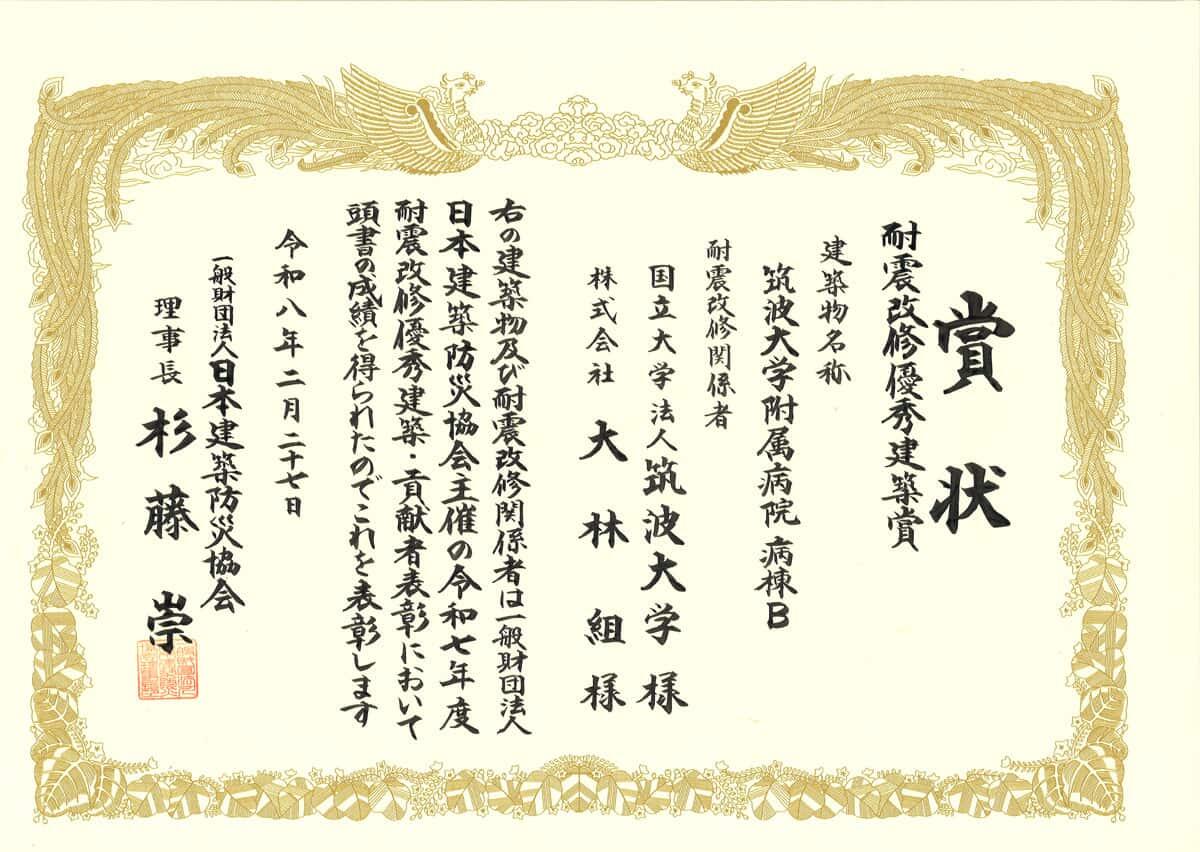 賞状
耐震改修優秀建築賞
建築物名称
筑波大学附属病院 病棟B
耐震改修関係者
国立大学法人 筑波大学 様
株式会社 大林組 様
右の建築物及び耐震改修関係者は一般財団法人
日本建築防災協会主催の令和七年度
耐震改修優秀建築・貢献者表彰において
頭書の成績を得られたのでこれを表彰します
令和八年二月二十七日
一般財団法人日本建築防災協会
理事長 杉藤 崇